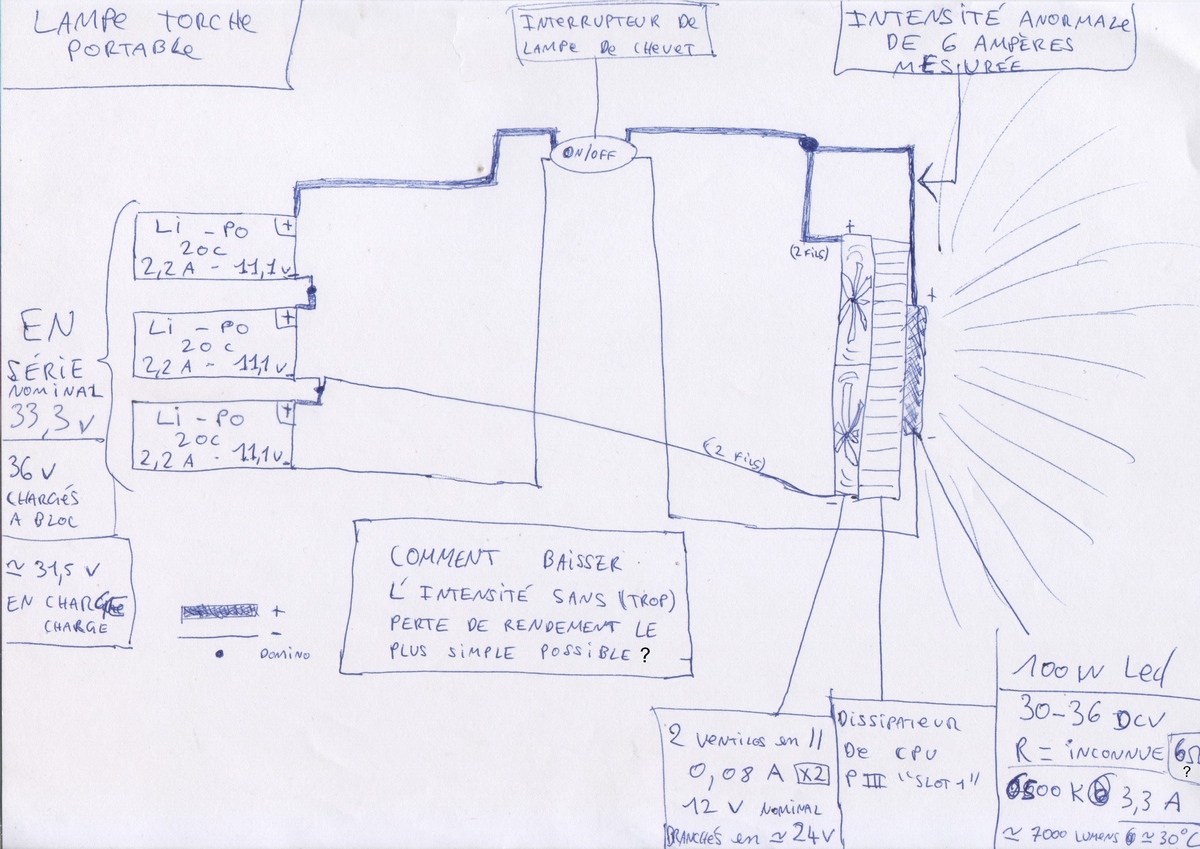 LAMPE TORCHE
PORTABLE
INTERRUPTEUR DE
LAMPE DE CHEVET
INTENSITÉ ANORMALE
DE 6 AMPÈRES
MESURÉE
ON/OFF
Li - PO +
20C
2,2 A - 11,1 v -
Li - PO +
20C
2,2 A - 11,1 v -
Li - PO +
20C
2,2 A - 11,1 v -
EN
SÉRIE
NOMINAL
33,3 v
36 v
CHARGÉS
A BLOC
≃ 31,5 v
EN
CHARGE
+
(2 FILS)
+
-
(2 FILS)
-
+
-
DOMINO
COMMENT BAISSER
L'INTENSITÉ SANS (TROP)
PERTE DE RENDEMENT LE
PLUS SIMPLE POSSIBLE ?
2 VENTILOS en //
0,08 A X2
12 V NOMINAL
BRANCHÉS en ≃ 24V
DISSIPATEUR
DE CPU
P III "SLOT 1"
100W Led
30-36 DCV
R = INCONNUE 6Ω
?
6500 K 3,3 A
≃ 7000 LUMENS ≃ 30°C